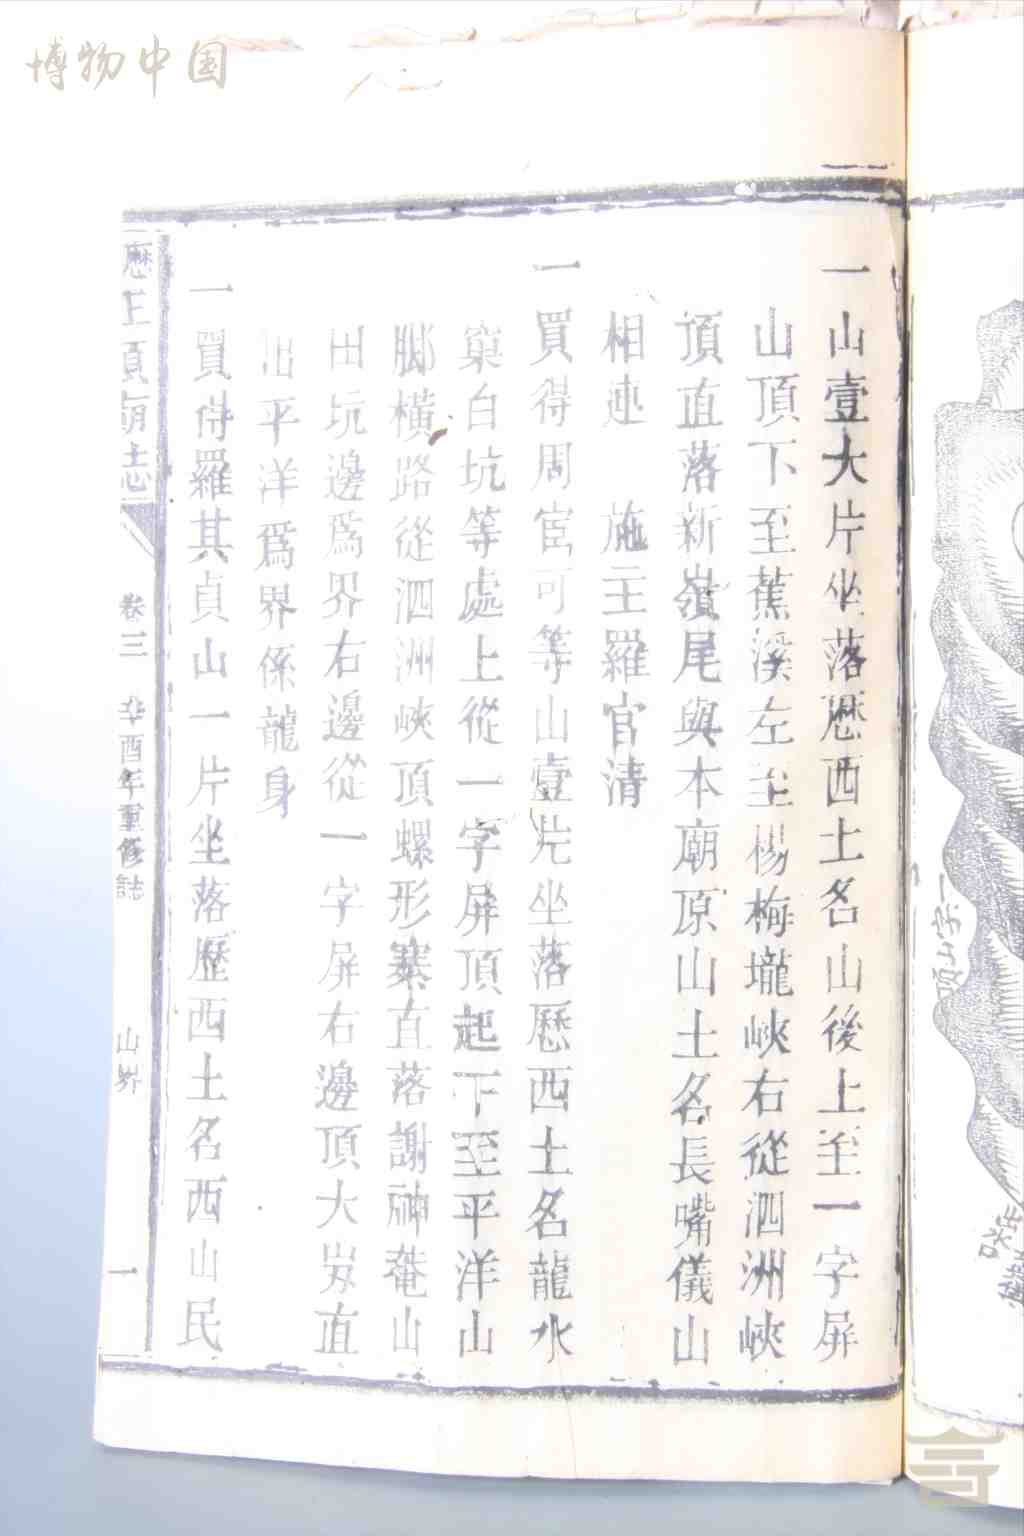 博物中国
一山壹大片坐落歷西土名山後上至一字屏
山頂下至蕉溪左至楊梅壠峽右從泗洲峽
頂直落新嶺尾與本廟原山土名長嘴儀山
相連 施主羅官清
一買得周宦可等山壹片坐落歷西土名龍水
窠白坑等處上從一字屏頂起下至平洋山
腳橫路從泗洲峽頂螺形寨直落謝神菴山
田坑邊爲界右邊從一字屏右邊頂大岌直
出平洋爲界係龍身
一買得羅其貞山一片坐落歷西土名西山民
歷王頂廟志 卷三 辛酉年重修誌 山界 一